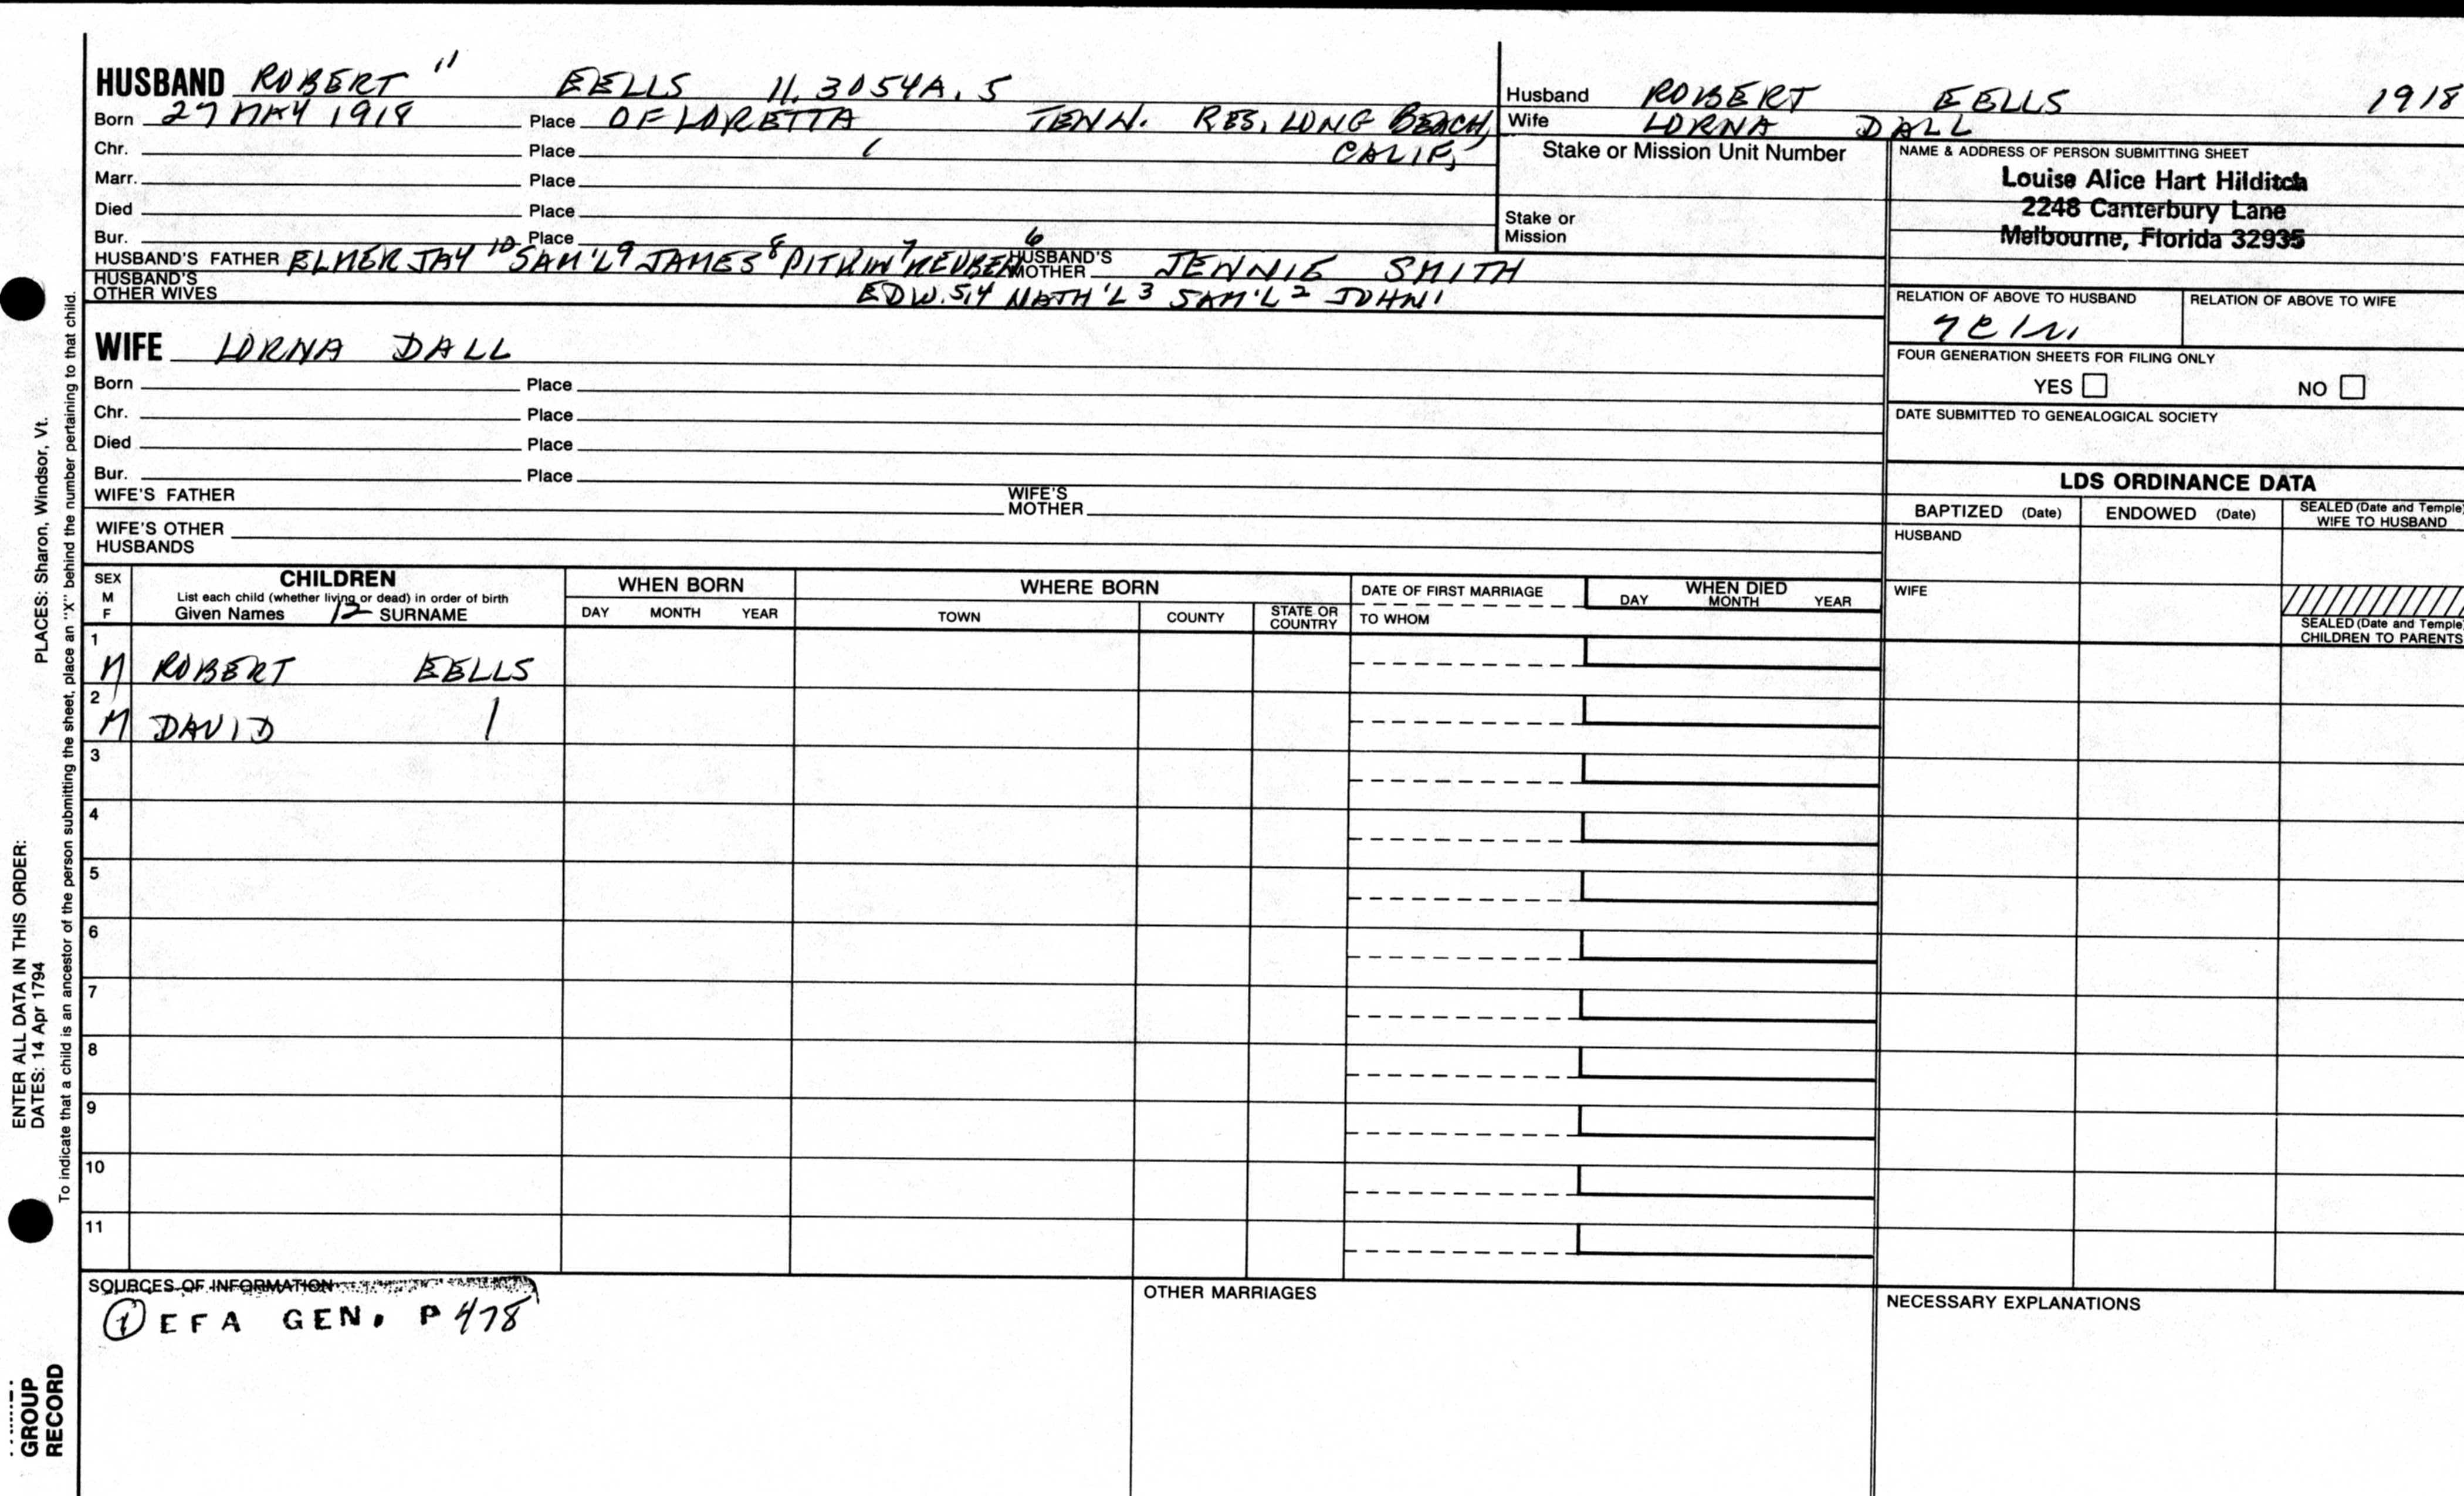 HUSBAND ROBERT 11 EELLS 11.3054A.5
Born 27 MAY 1918 Place OF LORETTA TENN. RES, LONG BEACH,
Chr. Place CALIF,
Marr. Place
Died Place
Bur. Place
HUSBAND'S FATHER ELMER JAY 10 SAM'L 9 JAMES 8 PITKIN 7 REUBEN 6 HUSBAND'S MOTHER JENNIE SMITH
HUSBAND'S OTHER WIVES EDW. 5,4 NATH'L 3 SAM'L 2 JOHN 1
WIFE LORNA DALL
Born Place
Chr. Place
Died Place
Bur. Place
WIFE'S FATHER WIFE'S MOTHER
WIFE'S OTHER HUSBANDS
Husband ROBERT EELLS 1918
Wife LORNA DALL
Stake or Mission Unit Number
Stake or Mission
NAME & ADDRESS OF PERSON SUBMITTING SHEET
Louise Alice Hart Hilditch
2248 Canterbury Lane
Melbourne, Florida 32935
RELATION OF ABOVE TO HUSBAND RELATION OF ABOVE TO WIFE
FOUR GENERATION SHEETS FOR FILING ONLY
YES NO
DATE SUBMITTED TO GENEALOGICAL SOCIETY
LDS ORDINANCE DATA
BAPTIZED (Date) ENDOWED (Date) SEALED (Date and Temple) WIFE TO HUSBAND
HUSBAND
WIFE
SEALED (Date and Temple) CHILDREN TO PARENTS
SEX M F
CHILDREN
List each child (whether living or dead) in order of birth
Given Names 12 SURNAME
WHEN BORN
DAY MONTH YEAR
WHERE BORN
TOWN COUNTY STATE OR COUNTRY
DATE OF FIRST MARRIAGE
TO WHOM
WHEN DIED
DAY MONTH YEAR
1
M ROBERT EELLS
2
M DAVID |
3
4
5
6
7
8
9
10
11
SOURCES OF INFORMATION
① EFA GEN. P 478
OTHER MARRIAGES
NECESSARY EXPLANATIONS
ENTER ALL DATA IN THIS ORDER:
DATES: 14 Apr 1794 PLACES: Sharon, Windsor, Vt.
To indicate that a child is an ancestor of the person submitting the sheet, place an "X" behind the number pertaining to that child.
GROUP
RECORD